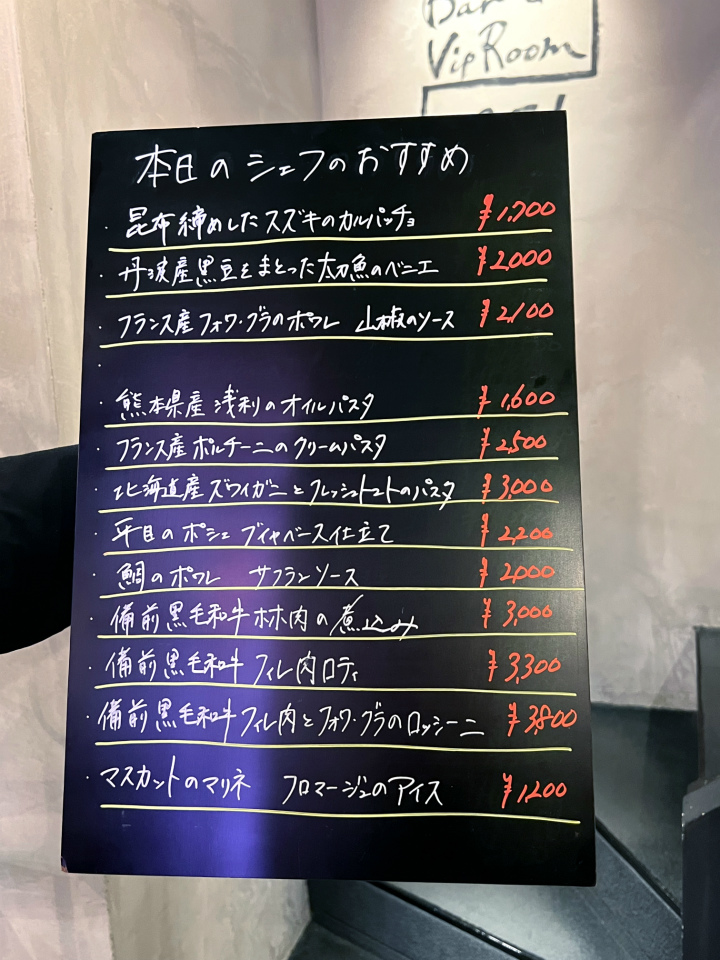 Bar
Vip Room
本日のシェフのおすすめ
・昆布締めしたスズキのカルパッチョ ¥1,700
・丹波産黒豆をまとった太刀魚のベニエ ¥2,000
・フランス産フォワ・グラのポワレ 山椒のソース ¥2,100
・
・熊本県産浅利のオイルパスタ ¥1,600
・フランス産ポルチーニのクリームパスタ ¥2,500
・北海道産ズワイガニとフレッシュトマトのパスタ ¥3,000
・平目のポシェ ブイヤベース仕立て ¥2,200
・鯛のポワレ サフランソース ¥2,000
・備前黒毛和牛ホホ肉の煮込み ¥3,000
・備前黒毛和牛フィレ肉ロティ ¥3,300
・備前黒毛和牛フィレ肉とフォワ・グラのロッシーニ ¥3,800
・マスカットのマリネ フロマージュのアイス ¥1,200